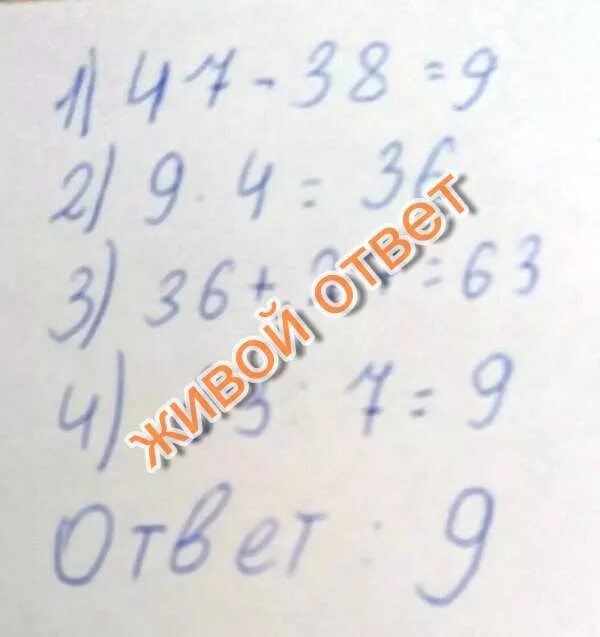 1) 47 - 38 = 9
2) 9 · 4 = 36
3) 36 + = 63
4) 3 : 7 = 9
Ответ : 9
живой ответ